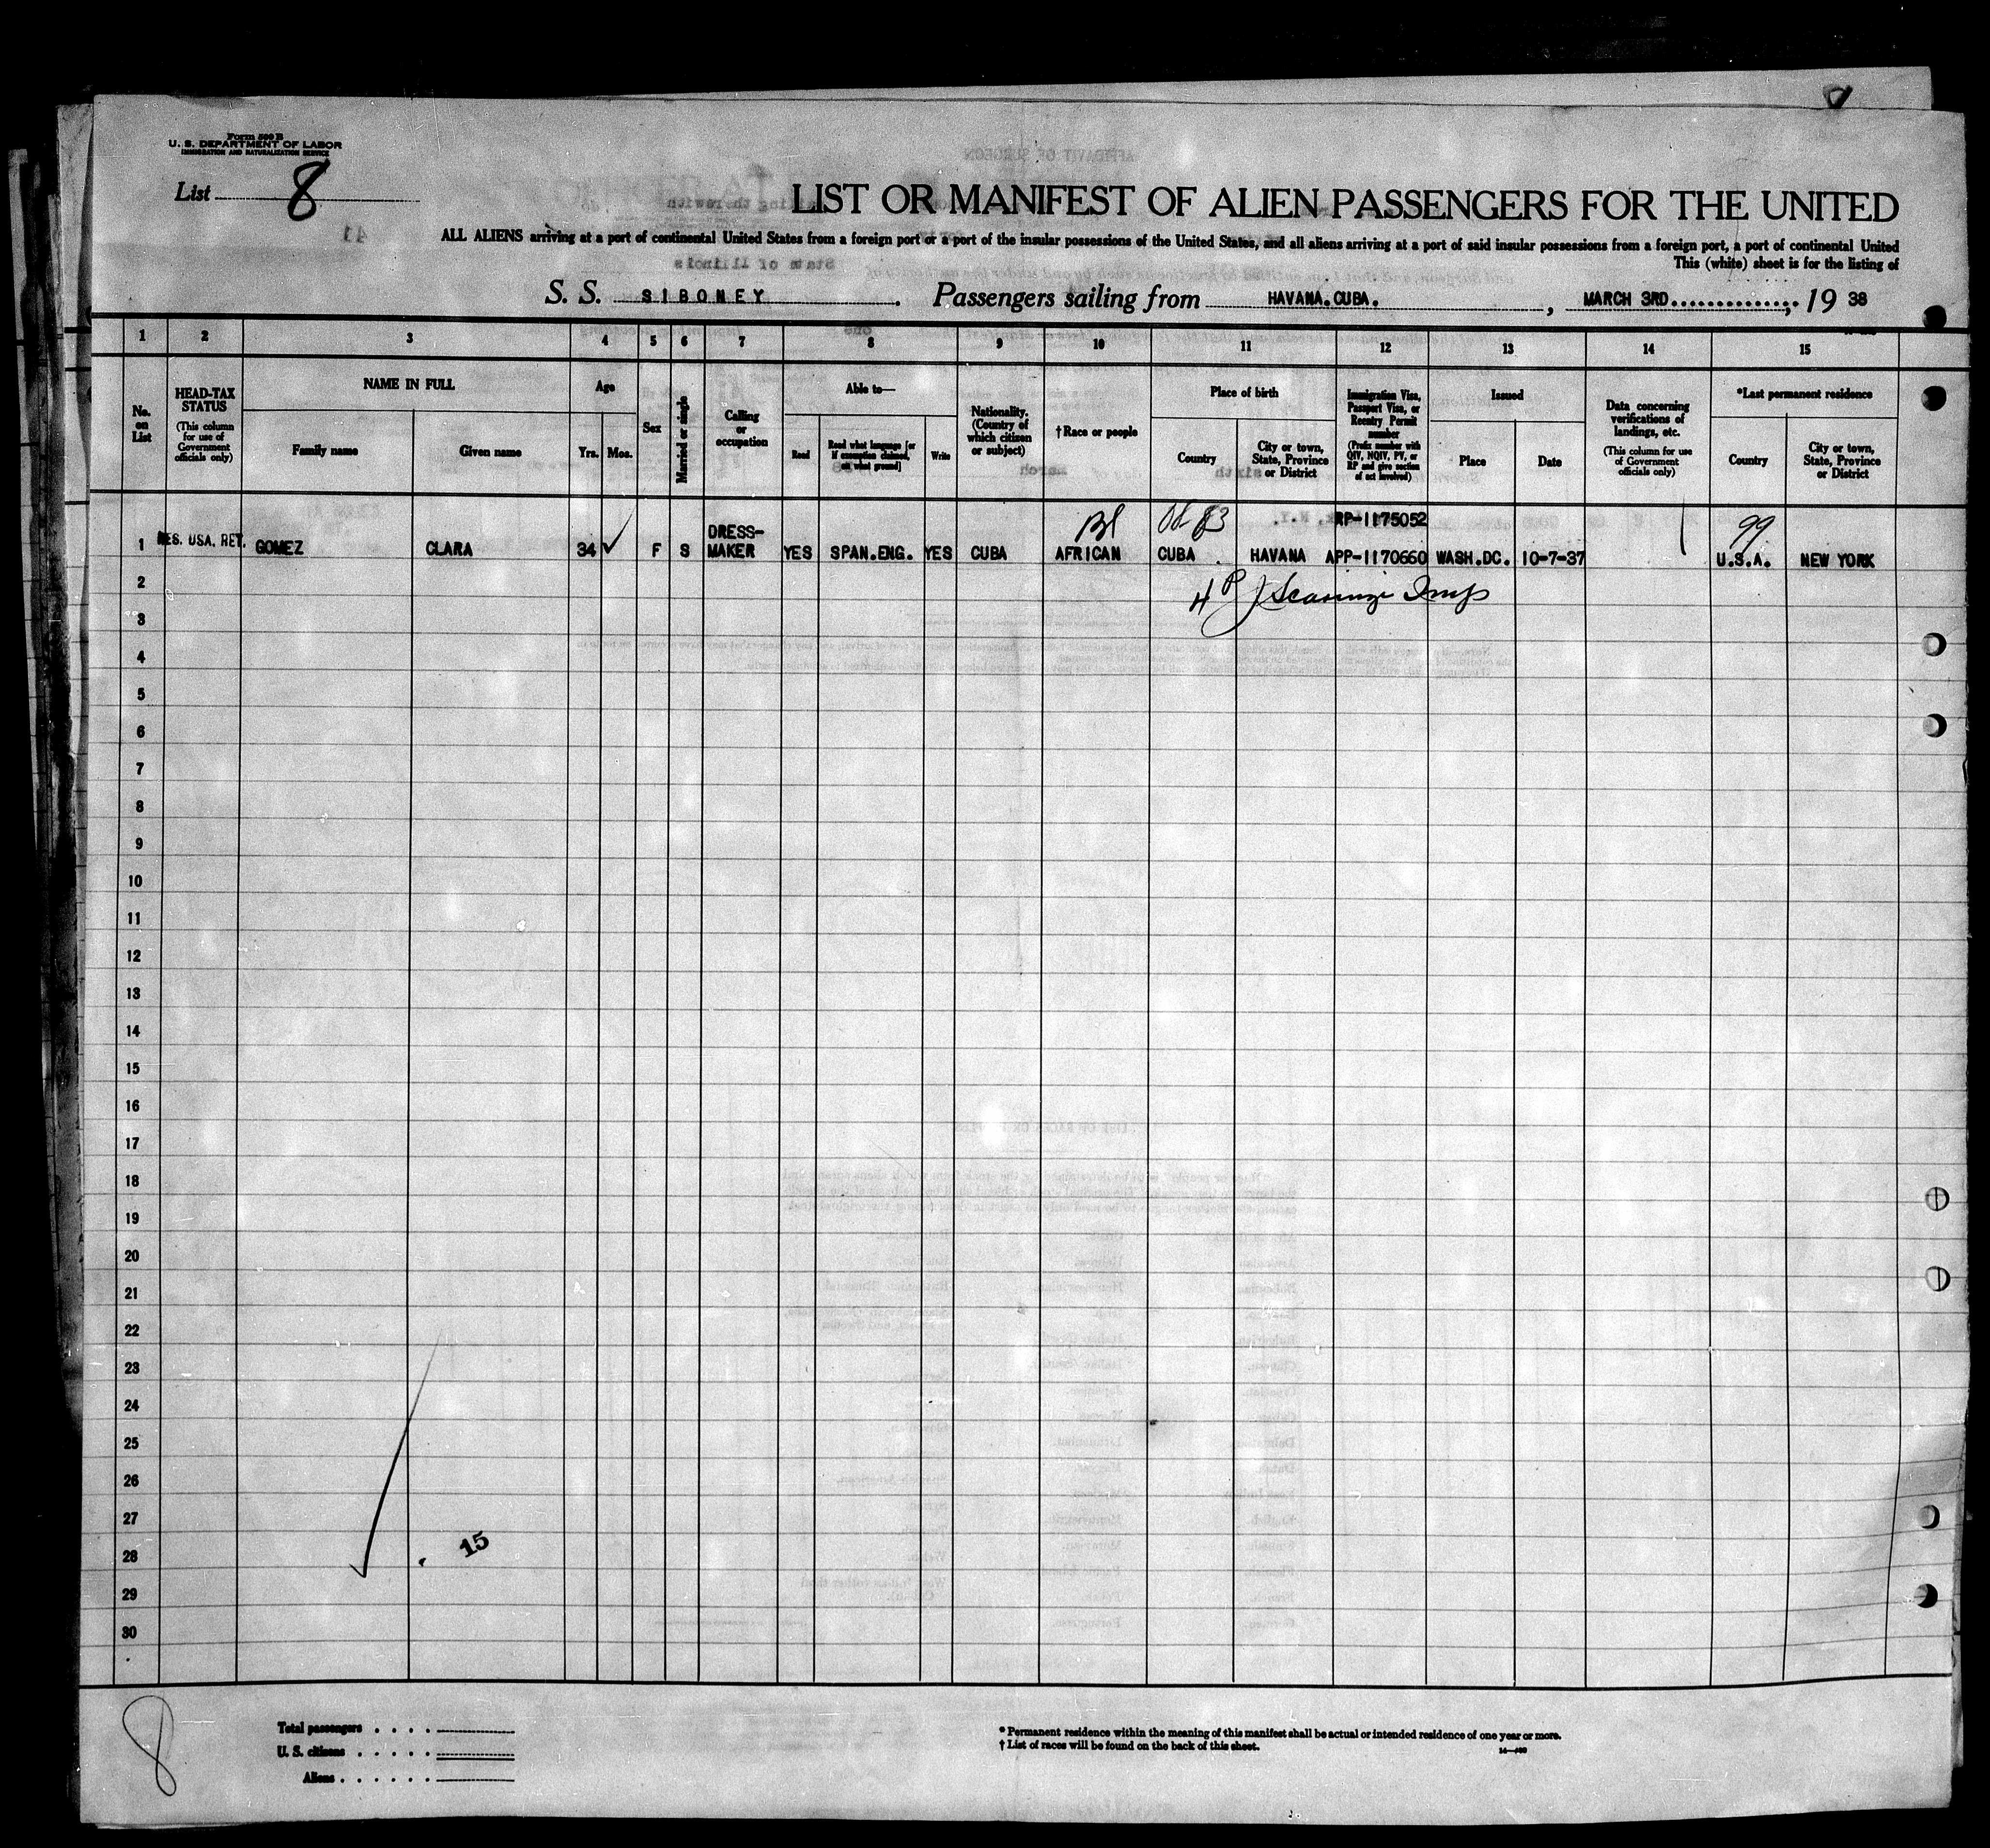 Form 500 B
U. S. DEPARTMENT OF LABOR
IMMIGRATION AND NATURALIZATION SERVICE
List 8
LIST OR MANIFEST OF ALIEN PASSENGERS FOR THE UNITED
ALL ALIENS arriving at a port of continental United States from a foreign port or a port of the insular possessions of the United States, and all aliens arriving at a port of said insular possessions from a foreign port, a port of continental United
This (white) sheet is for the listing of
S. S. SIBONEY. Passengers sailing from HAVANA.CUBA., MARCH 3RD, 19 38
1 2 3 4 5 6 7 8 9 10 11 12 13 14 15
No. on List
HEAD-TAX STATUS (This column for use of Government officials only)
NAME IN FULL
Family name
Given name
Age
Yrs. Mos.
Sex
Married or single
Calling or occupation
Able to—
Read
Read what language [or if exemption claimed, on what ground]
Write
Nationality. (Country of which citizen or subject)
†Race or people
Place of birth
Country
City or town, State, Province or District
Immigration Visa, Passport Visa, or Reentry Permit number (Prefix number with QIV, NQIV, PV, or RP and give section of act involved)
Issued
Place
Date
Data concerning verifications of landings, etc. (This column for use of Government officials only)
*Last permanent residence
Country
City or town, State, Province or District
Bl RP-1175052 99
1 RES. USA. RET. GOMEZ CLARA 34 F S DRESS-MAKER YES SPAN.ENG. YES CUBA AFRICAN CUBA HAVANA APP-1170660 WASH.DC. 10-7-37 U.S.A. NEW YORK
2
3
4
5
6
7
8
9
10
11
12
13
14
15
16
17
18
19
20
21
22
23
24
25
26
27
28 15
29
30
8
Total passengers
U. S. citizens
Aliens
* Permanent residence within the meaning of this manifest shall be actual or intended residence of one year or more.
† List of races will be found on the back of this sheet.